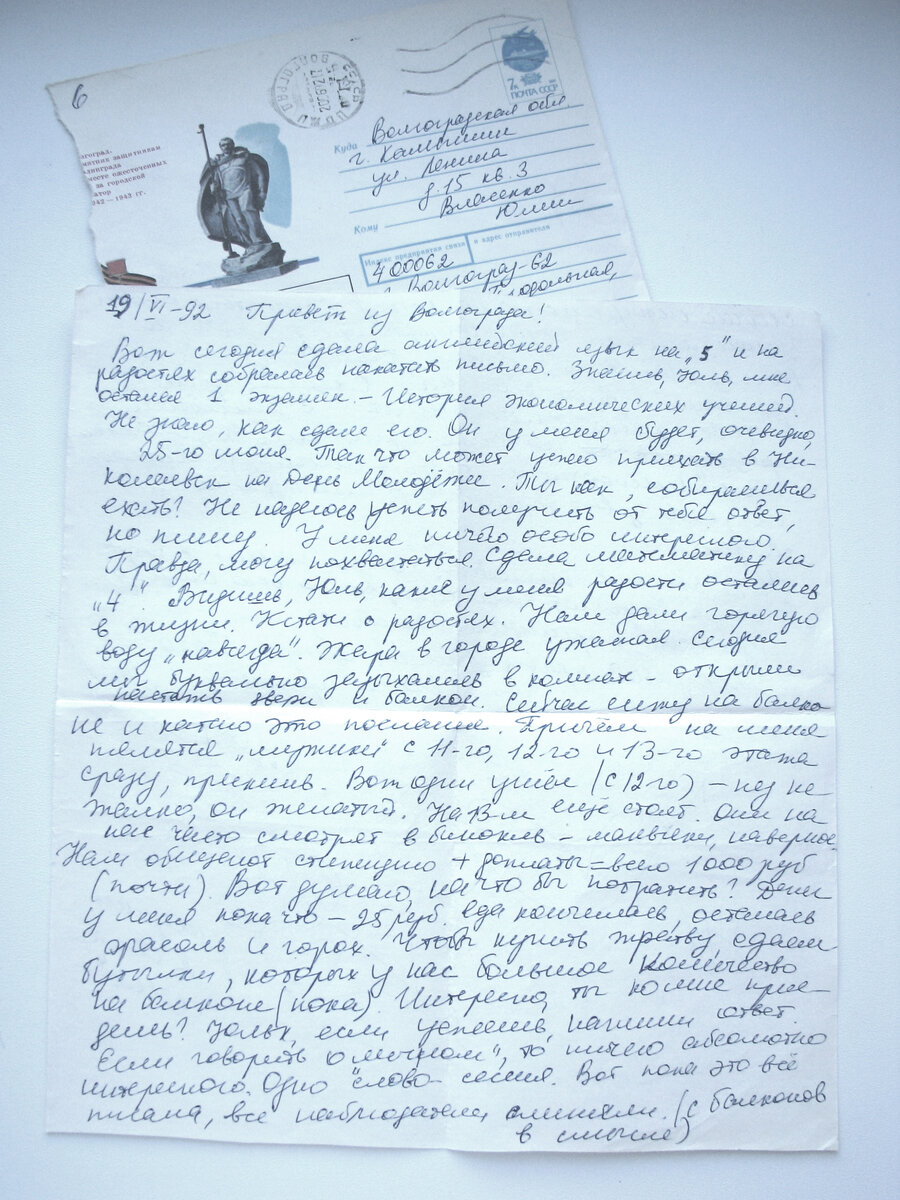 6
ПОЧТА СССР
7к
лгоград.
мятник защитникам
алинграда
месте ожесточенных
за городской
ватор
1942—1943 гг.
Куда Волгоградская обл.
г. Камышин
ул. Ленина
д. 15 кв. 3
Кому Власенко
Юлии
Индекс предприятия связи и адрес отправителя
400062
г. Волгоград-62
19/VI-92 Привет из Волгограда!
Вот сегодня сдала английский язык на „5" и на
радостях собралась накатать письмо. Знаешь, Юль, мне
остался 1 экзамен. – История экономических учений.
Не знаю, как сдам его. Он у меня будет, очевидно,
25-го июня. Так что может успею приехать в Ни-
колаевск на День Молодёжи. Ты как, собираешься
ехать? Не надеюсь успеть получить от тебя ответ,
но пишу. У меня ничего особо интересного.
Правда, могу похвастаться. Сдала математику на
„4". Видишь, Юль, какие у меня радости остались
в жизни. Кстати о радостях. Нам дали горячую
воду „навсегда". Жара в городе ужасная. Сегодня
мы буквально задыхались в комнате – открыли
настежь двери и балкон. Сейчас сижу на балко-
не и катаю это послание. Причём на меня
пялятся „мужики" с 11-го, 12-го и 13-го этажа
сразу, прикинь. Вот один ушёл (с 12-го) – ну не
жалко, он женатый. На 13-м ещё стоят. Они на
нас часто смотрят в бинокль – маньяки, наверное.
Нам обещают стипендию + доплаты = всего 1000 руб
(почти). Вот думаю, на что бы потратить? Денег
у меня пока что – 25 руб. Еда кончилась, осталась
фасоль и горох. Чтобы купить жратву, сдаем
бутылки, которых у нас большое количество
на балконе (пока). Интересно, ты ко мне прие-
дешь? Юльк, если успеешь, напиши ответ.
Если говорить о „личном", то ничего абсолютно
интересного. Одно слово – сессия. Вот пока это всё
писала, все наблюдатели слиняли. (с балконов
в смысле)